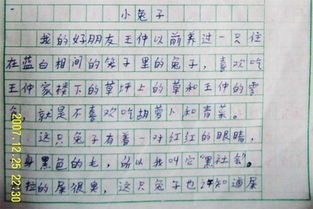 小兔子
我的好朋友王仲以前养过一只住
在蓝白相间的笼子里的兔子，喜欢吃
王仲家楼下的草坪上的草和王仲的零
食，就是不喜欢吃胡萝卜和青菜。
这只兔子有着一对红红的眼睛，
身黑色的毛，所以我叫它“黑社会”。
拉的屎很臭，这只兔子也不知道屎
2007.12.25 22:30